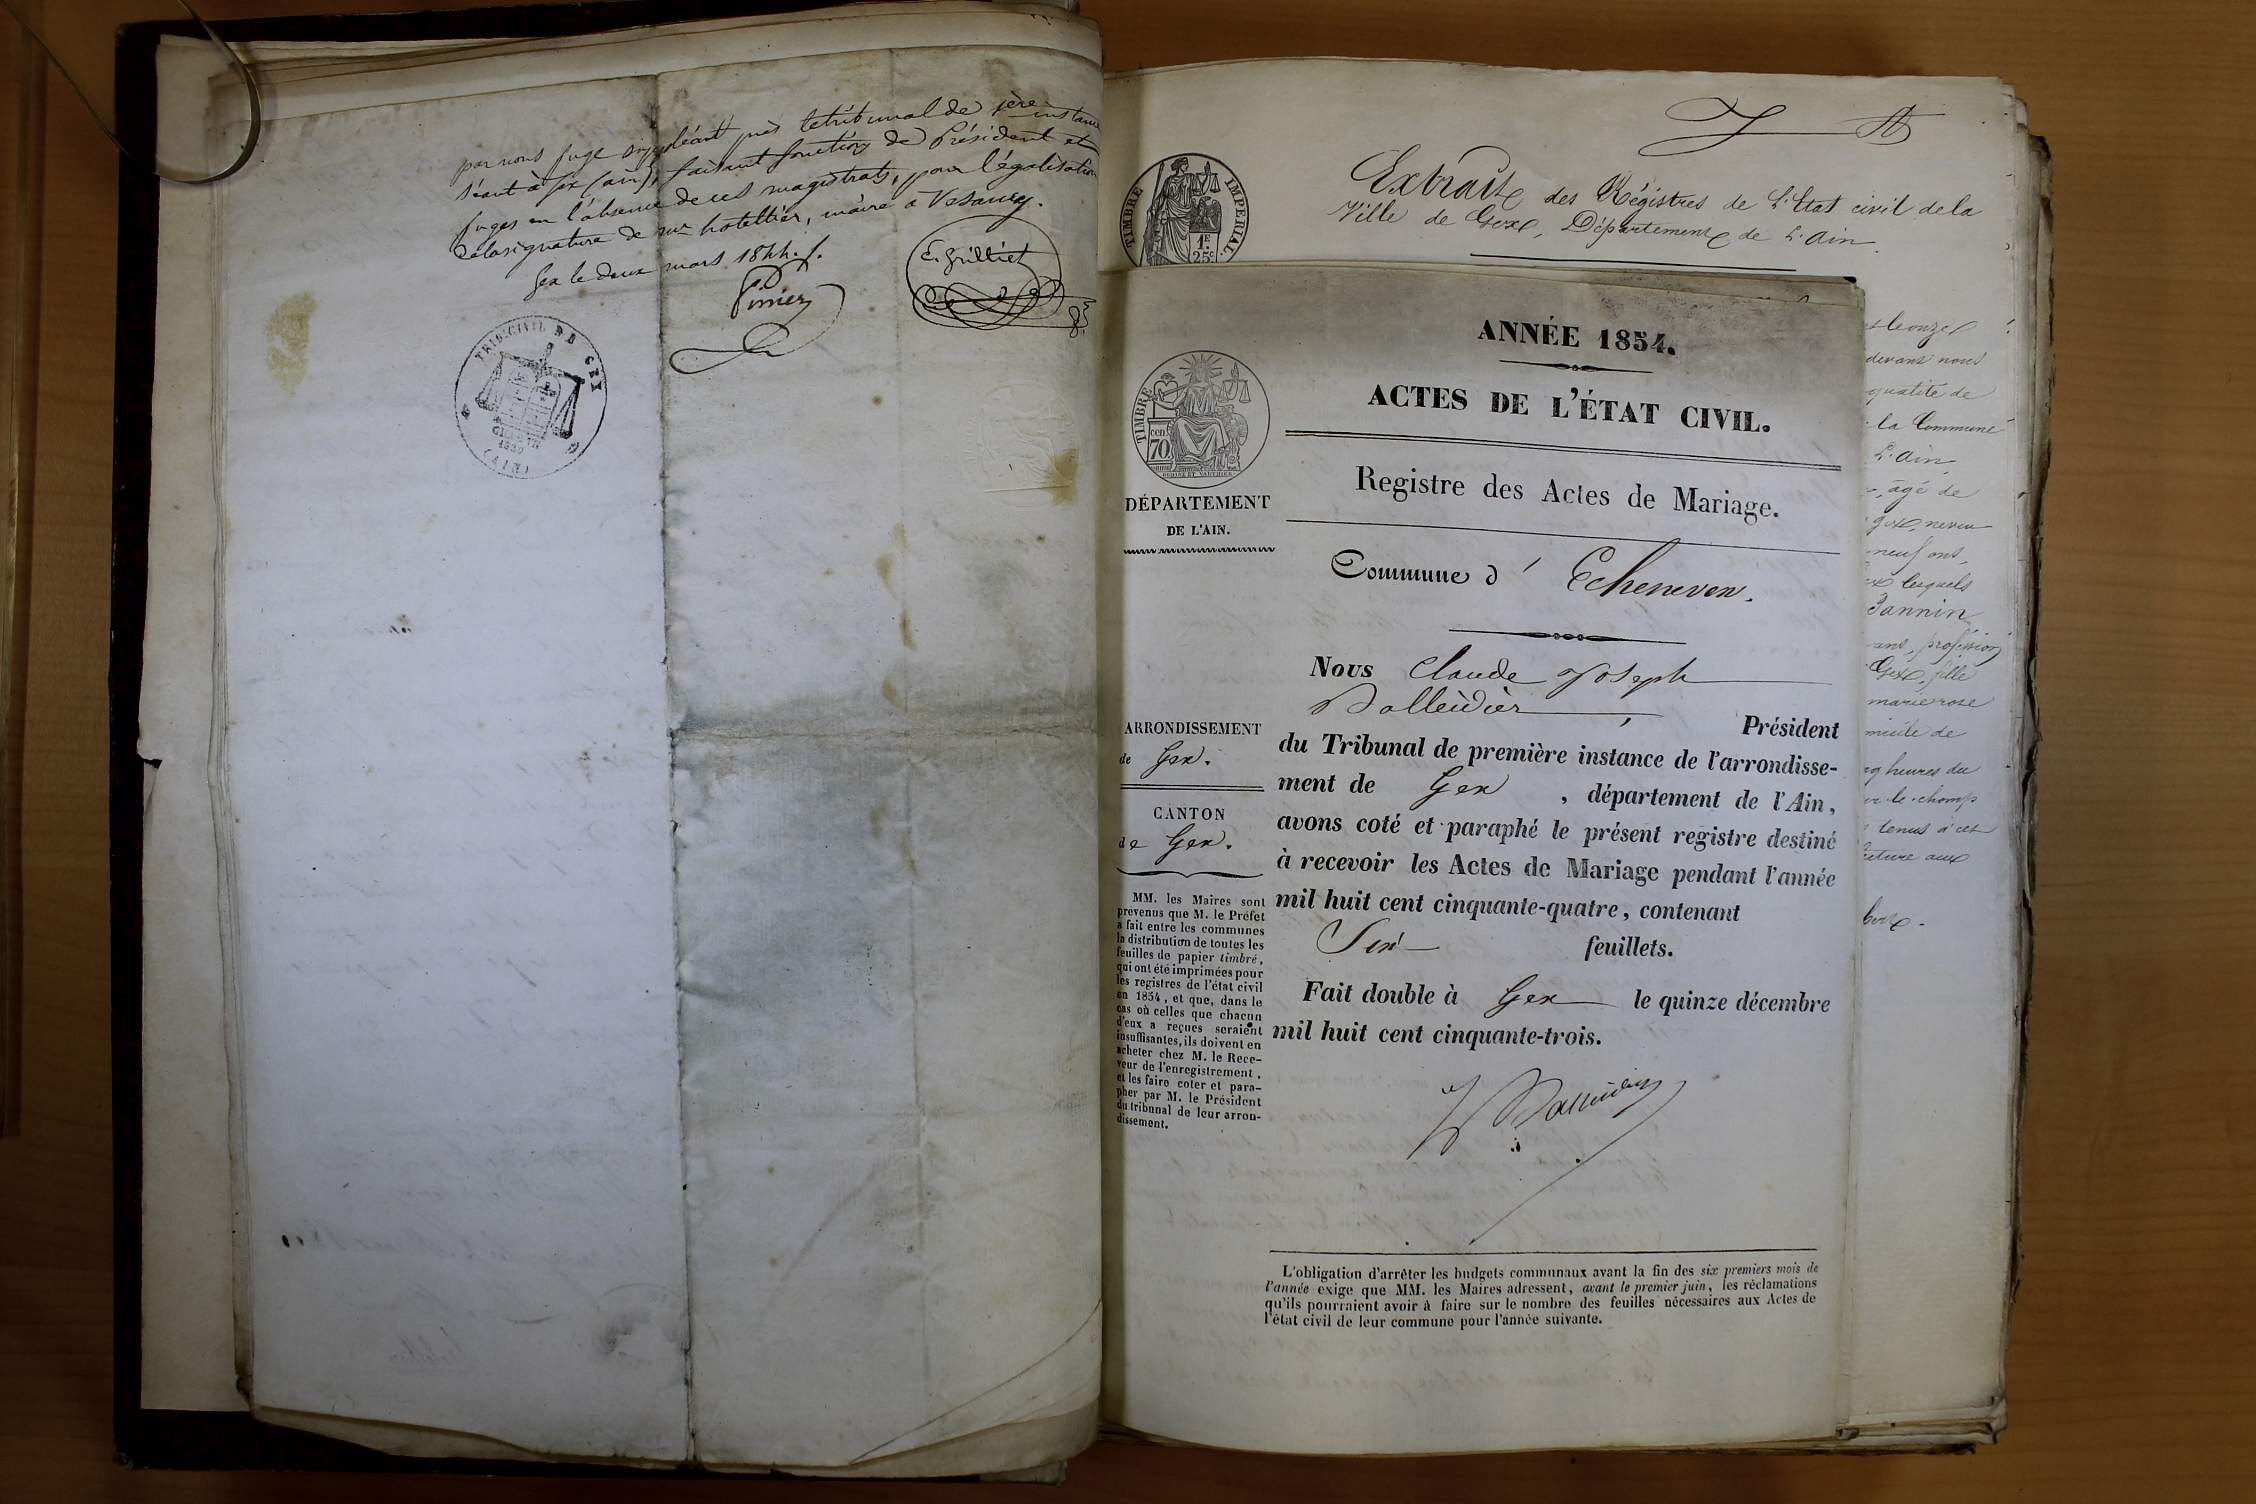 par nous juge suppléant près le tribunal de 1ère instance
séant à Gex (ain), faisant fonctions de Président et
juges en l'absence de ces magistrats, pour légalisation
de la signature de mr hotellier, maire à Vesancy.
Gex le deux mars 1844.
E. Grilliet
TRIB. CIVIL DE GEX
(AIN)
Extrait des Régistres de L'Etat civil de la
Ville de Gex, Département de L'ain.
TIMBRE IMPERIAL
1F.
25c.
devant nous
qualité de
la Commune
L'ain
âgé de
Gex, neveu
neuf ans,
lesquels
Jannin
ans, profession
Gex, fille
marie rose
heures du
le champ
tenus à cet
aux
ANNÉE 1854.
ACTES DE L'ÉTAT CIVIL.
TIMBRE
cen.
70.
Registre des Actes de Mariage.
DÉPARTEMENT
DE L'AIN.
Commune d' Echenevex.
Nous Claude Joseph
Balleidier, Président
du Tribunal de première instance de l'arrondisse-
ment de Gex, département de l'Ain,
avons coté et paraphé le présent registre destiné
à recevoir les Actes de Mariage pendant l'année
mil huit cent cinquante-quatre, contenant
Six feuillets.
Fait double à Gex le quinze décembre
mil huit cent cinquante-trois.
Balleidier
ARRONDISSEMENT
de Gex.
CANTON
de Gex.
MM. les Maires sont
prévenus que M. le Préfet
a fait entre les communes
la distribution de toutes les
feuilles de papier timbré,
qui ont été imprimées pour
les registres de l'état civil
en 1854, et que, dans le
cas où celles que chacun
d'eux a reçues seraient
insuffisantes, ils doivent en
acheter chez M. le Rece-
veur de l'enregistrement,
et les faire coter et para-
pher par M. le Président
du tribunal de leur arron-
dissement.
L'obligation d'arrêter les budgets communaux avant la fin des six premiers mois de
l'année exige que MM. les Maires adressent, avant le premier juin, les réclamations
qu'ils pourraient avoir à faire sur le nombre des feuilles nécessaires aux Actes de
l'état civil de leur commune pour l'année suivante.